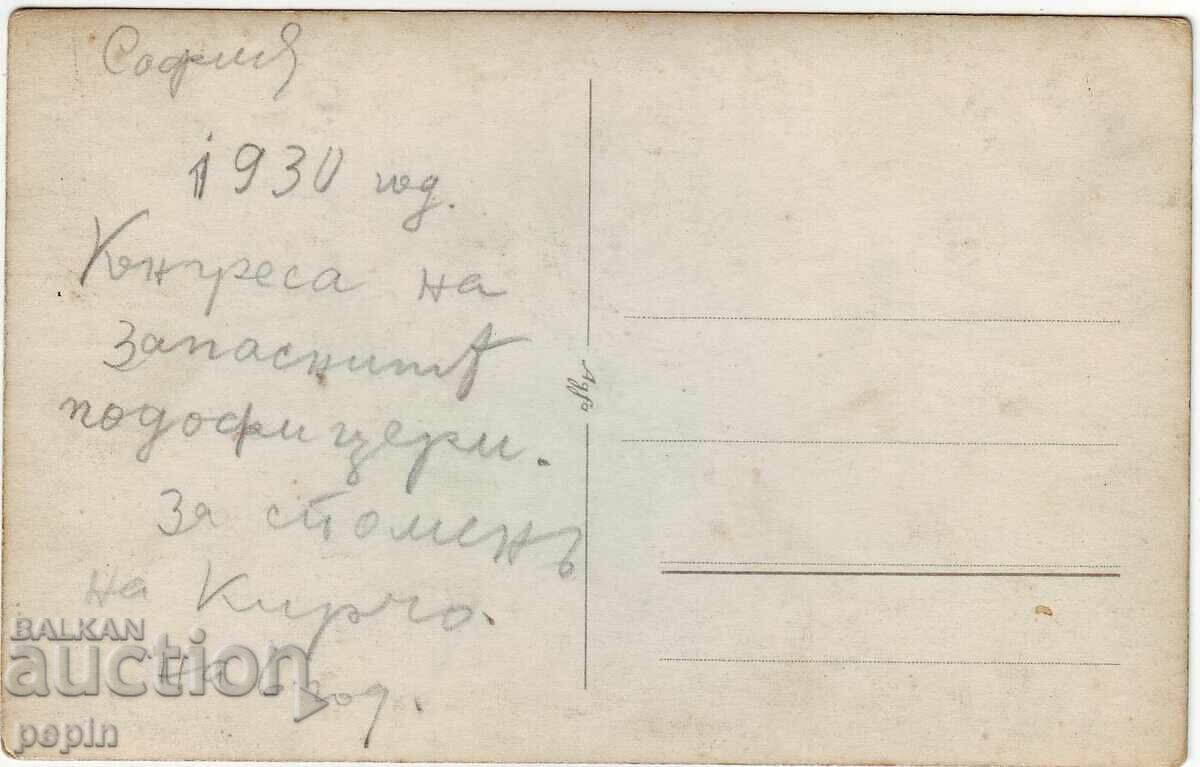 София
1930 год.
Конгреса на
запаснитѣ
подофицери.
За споменъ
на Кирчо.
на год.
BALKAN
auction
pepin